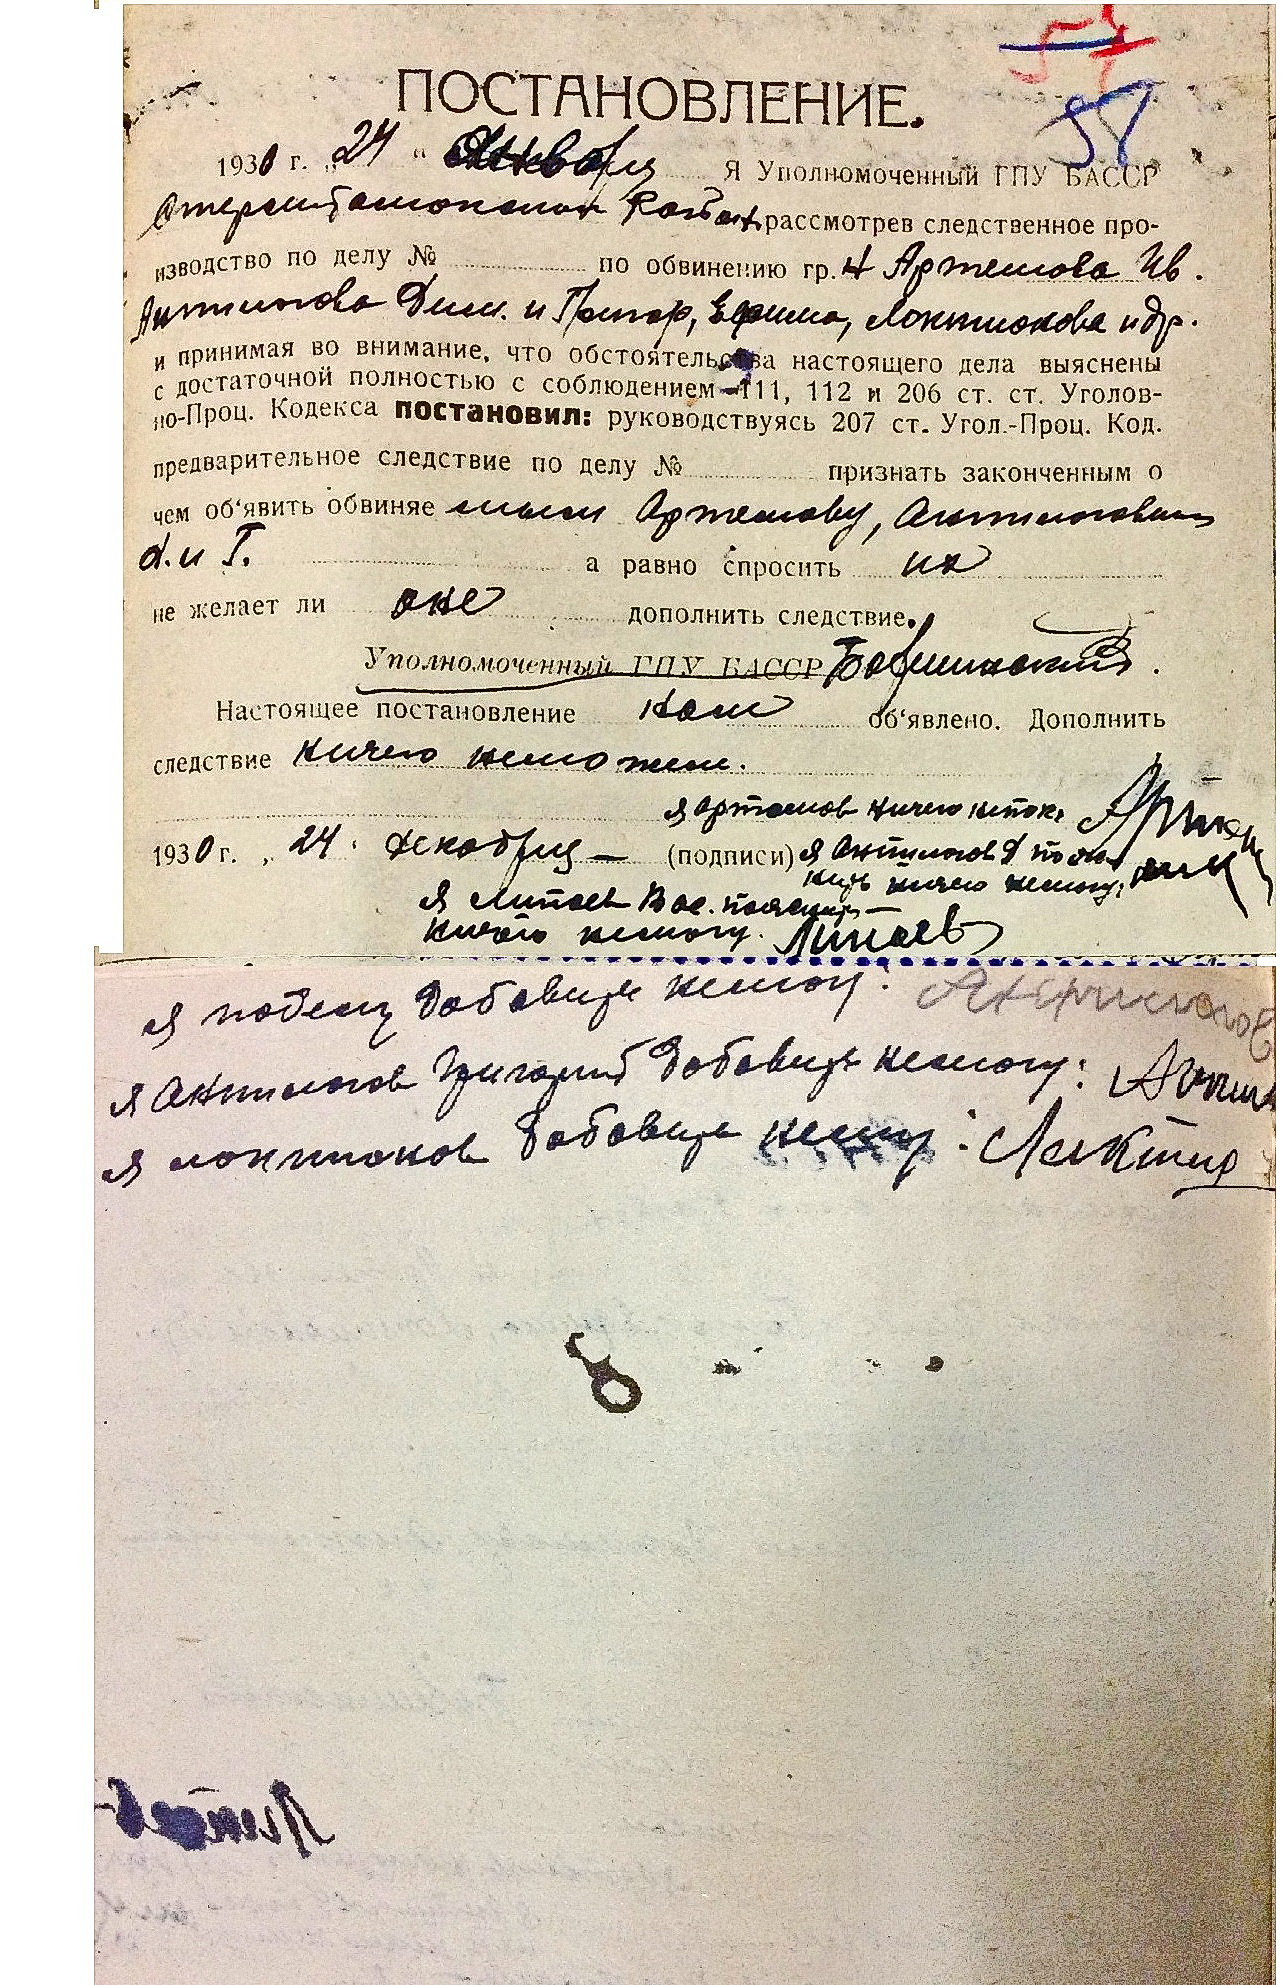 58
ПОСТАНОВЛЕНИЕ.
1930 г. „24 “ Января Я Уполномоченный ГПУ БАССР
рассмотрев следственное про-
изводство по делу № по обвинению гр. Артемова Ив.
Антипова Дим. и Григор, Ефима, Локтионова и др.
и принимая во внимание, что обстоятельства настоящего дела выяснены
с достаточной полностью с соблюдением 111, 112 и 206 ст. ст. Уголов-
но-Проц. Кодекса постановил: руководствуясь 207 ст. Угол.-Проц. Код.
предварительное следствие по делу № признать законченным о
чем об‘явить обвиняе мым Артемову, Антиповым
Д. и Г. а равно спросить их
не желает ли оне дополнить следствие.
Уполномоченный ГПУ БАССР
Настоящее постановление нам об‘явлено. Дополнить
следствие ничего неможем.
я Артемов ничего
1930 г. „ 24 . декабря — (подписи) я Антипов Д
ничего немогу.
я Липаев Вас. пояснить
ничего немогу. Липаев
я добавить немогу.
я Антипов Григорий добавить немогу:
я Локтионов добавить немогу: Локтио